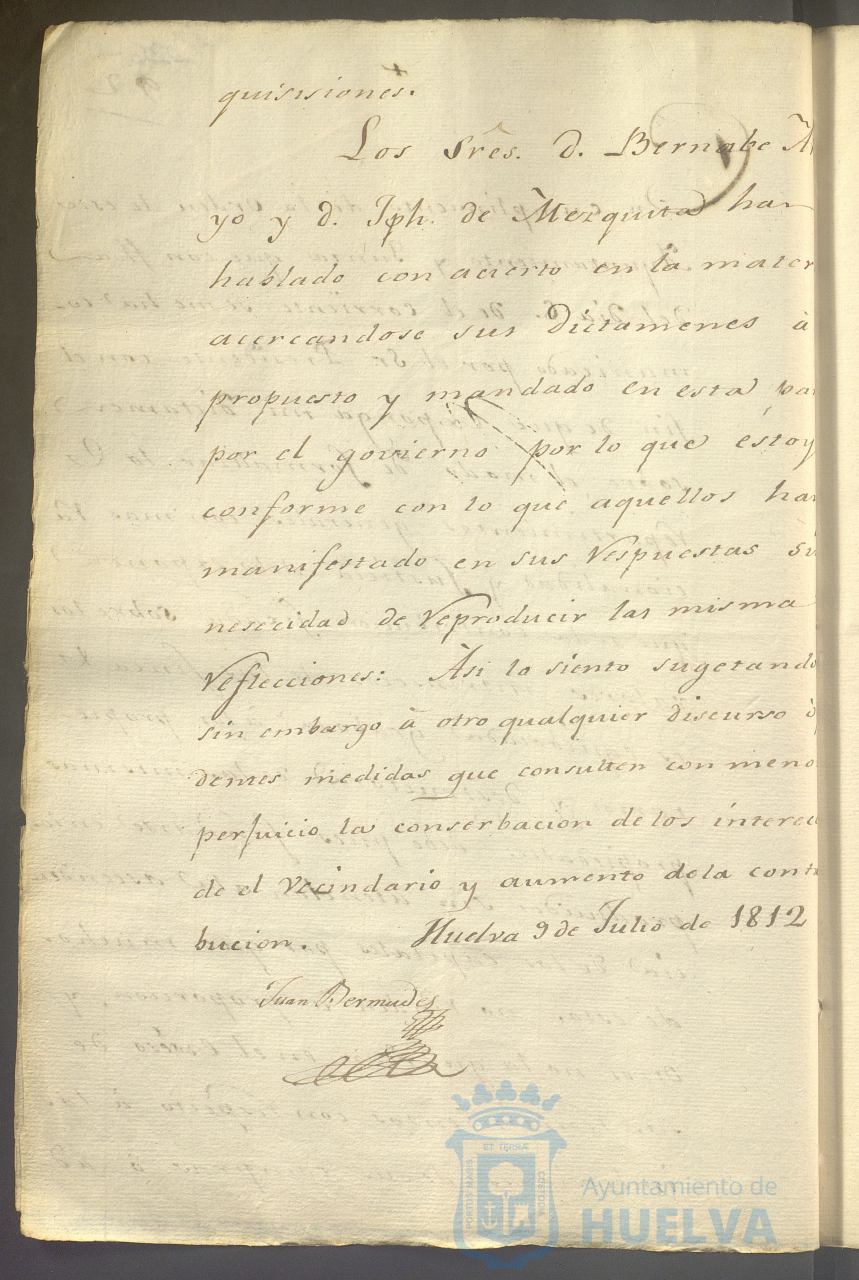 quisisiones.
Los Sres. d. Bernabe M
yo y d. Jph. de Mezquita han
hablado con acierto en la mater
acercandose sus Dictamenes à
propuesto y mandado en esta pa
por el govierno por lo que estoy
conforme con lo que aquellos han
manifestado en sus Respuestas si
nesecidad de Reproducir las misma
Reflecciones: Asi lo siento sugetando
sin embargo à otro qualquier discurso ò
dentes medidas que consulten con meno
perjuicio la conserbacion de los interec
de el Vecindario y aumento dela cont
bucion. Huelva 9 de Julio de 1812
Juan Bermudes
PORTUS MARIS ET TERRAE CUSTODIA
Ayuntamiento de
HUELVA